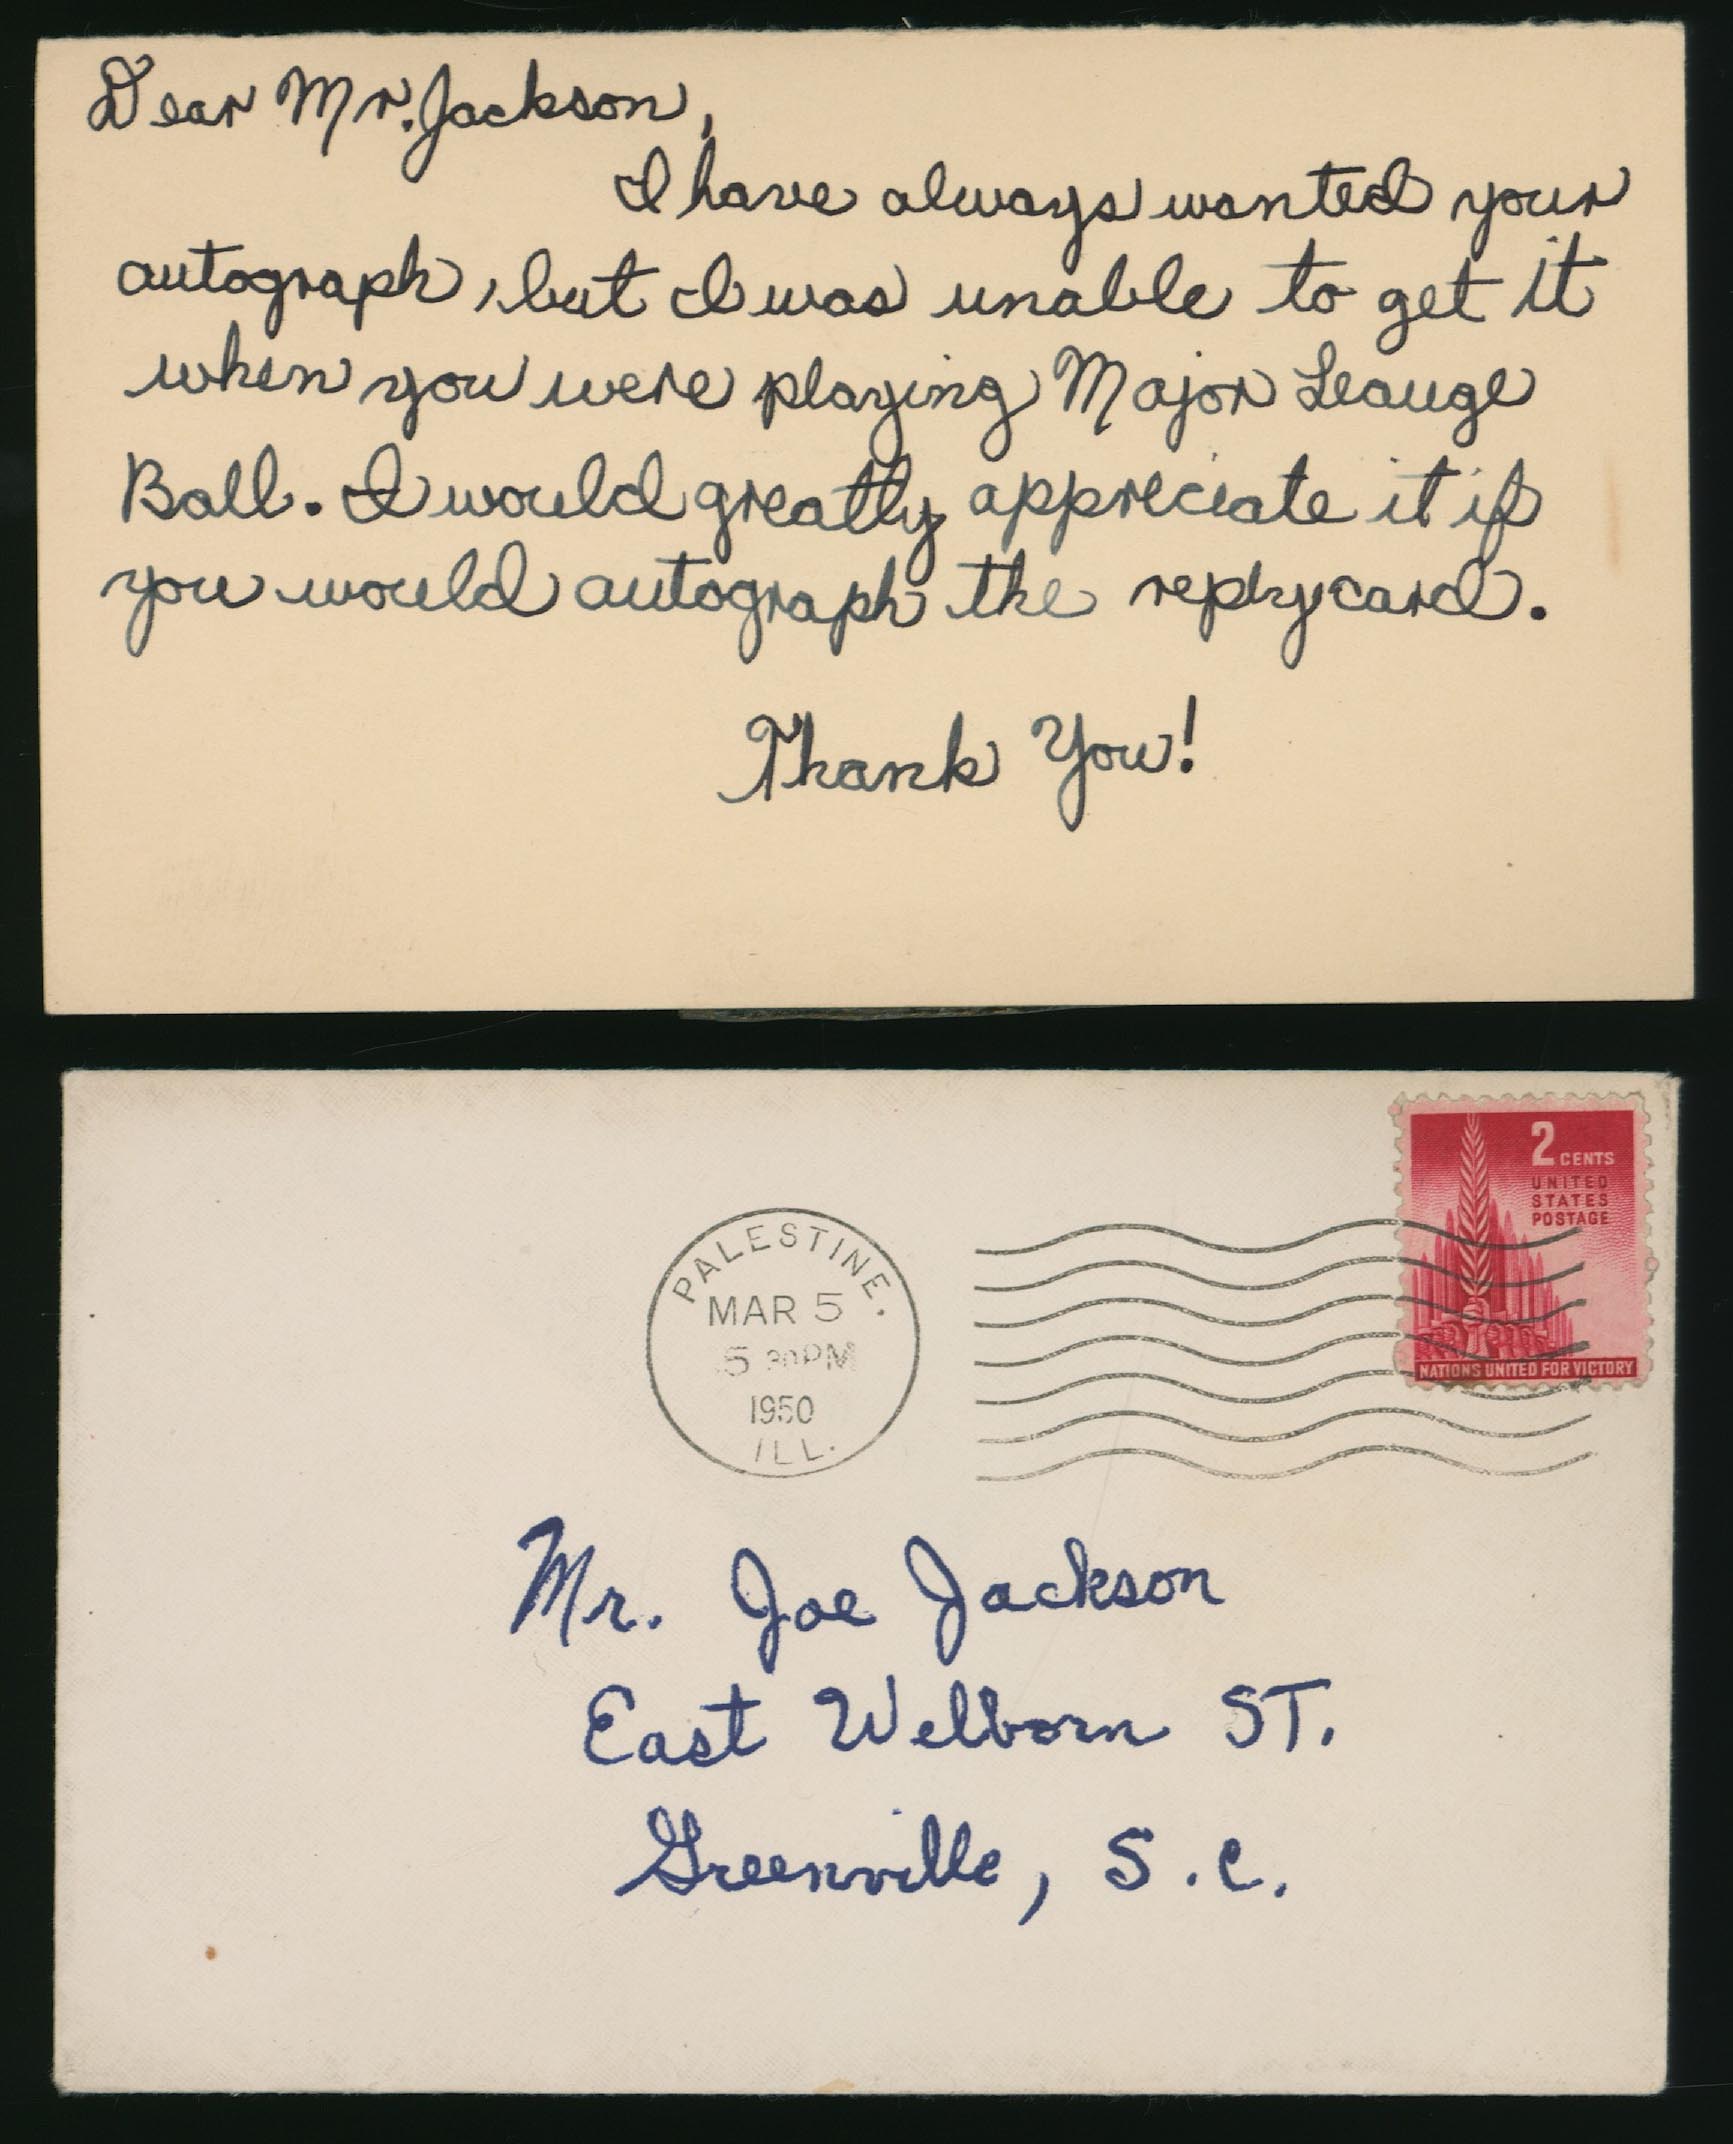 Dear Mr. Jackson,
I have always wanted your
autograph, but I was unable to get it
when you were playing Major Leauge
Ball. I would greatly appreciate it if
you would autograph the reply card.
Thank You!
2 CENTS
UNITED
STATES
POSTAGE
NATIONS UNITED FOR VICTORY
PALESTINE.
MAR 5
5 30 PM
1950
ILL.
Mr. Joe Jackson
East Welborn ST.
Greenville, S.C.